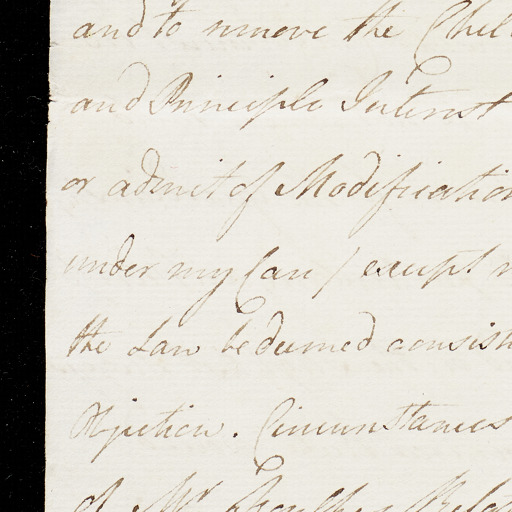 and to remove the Chil
and Principle Interest
or admit of Modification
under my Care / except
the Law be deemed consist
Objection. Circumstances
of Mr